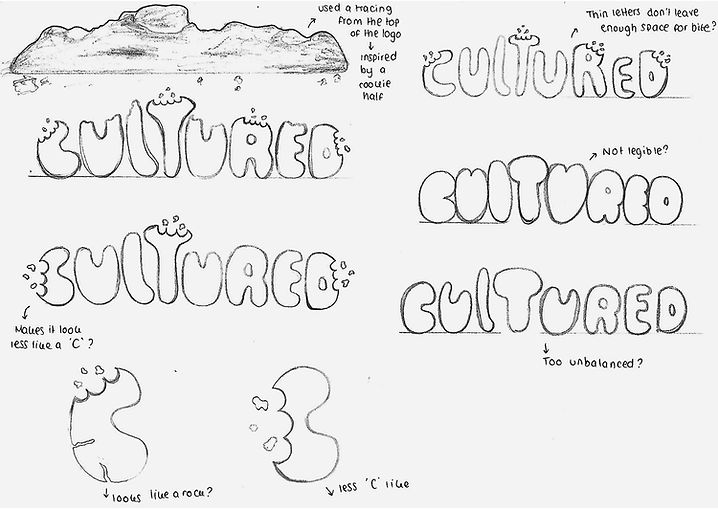 used a tracing
from the top
of the logo
inspired
by a
cookie
half
CULTURED
CULTURED
Makes it look
less like a 'C'?
looks like a rock?
less 'C' like
Thin letters don't leave
enough space for bite?
CULTURED
Not legible?
CULTURED
CULTURED
Too unbalanced?